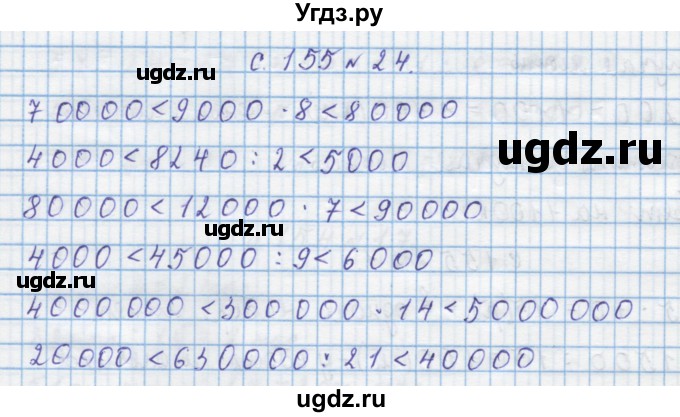 Угдз.ру
с. 155 № 24.
ugdz.ru
70000<9000·8<80000
ugdz.ru
4000<8240:2<5000
80000<12000·7<90000
ugdz.ru
4000<45000:9<6000
4000000<300000·14<5000000
20000<630000:21<40000
ugdz.ru
ugdz.ru